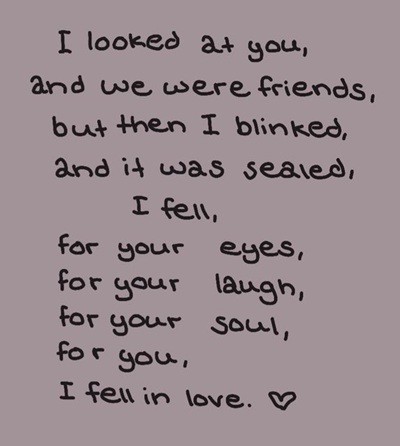 I looked at you,
and we were friends,
but then I blinked,
and it was sealed,
I fell,
for your eyes,
for your laugh,
for your soul,
for you,
I fell in love. ♡